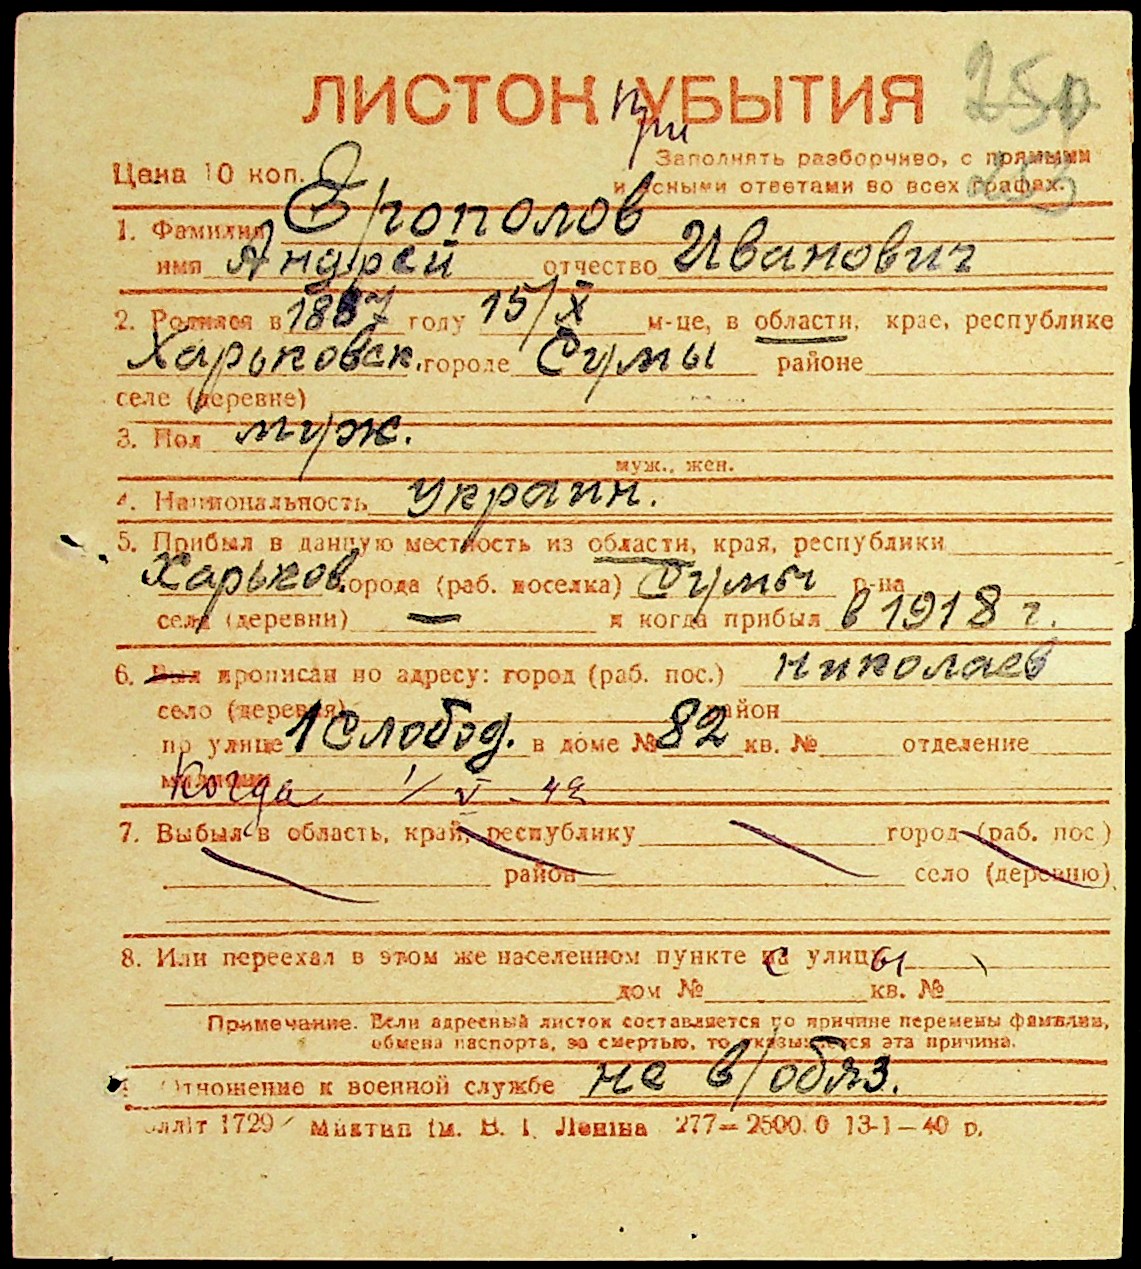 ЛИСТОК при УБЫТИЯ 250
Цена 10 коп. Заполнять разборчиво, с прямыми
и ясными ответами во всех графах. 253
1. Фамилия
имя Андрей отчество Иванович
2. Родился в 1887 году 15/X м-це, в области, крае, республике
Харьковск. городе Сумы районе
селе (деревне)
3. Пол муж.
муж., жен.
4. Национальность украин.
5. Прибыл в данную местность из области, края, республики
Харьков. города (раб. поселка) Сумы р-на
села (деревни) — и когда прибыл в 1918 г.
6. Был прописан по адресу: город (раб. пос.) Николаев
село (деревня) район
по улице 1 Слобод. в доме № 82 кв. № отделение
милиции Когда 1/V - 42
7. Выбыл в область, край, республику город (раб. пос.)
район село (деревню)
8. Или переехал в этом же населенном пункте с улицы
дом № кв. №
Примечание. Если адресный листок составляется по причине перемены фамилии,
обмена паспорта, за смертью, то указывается эта причина.
Отношение к военной службе не в/обяз.
Миктип ім. В. І. Леніна 277—2500.0 13-1—40 р.